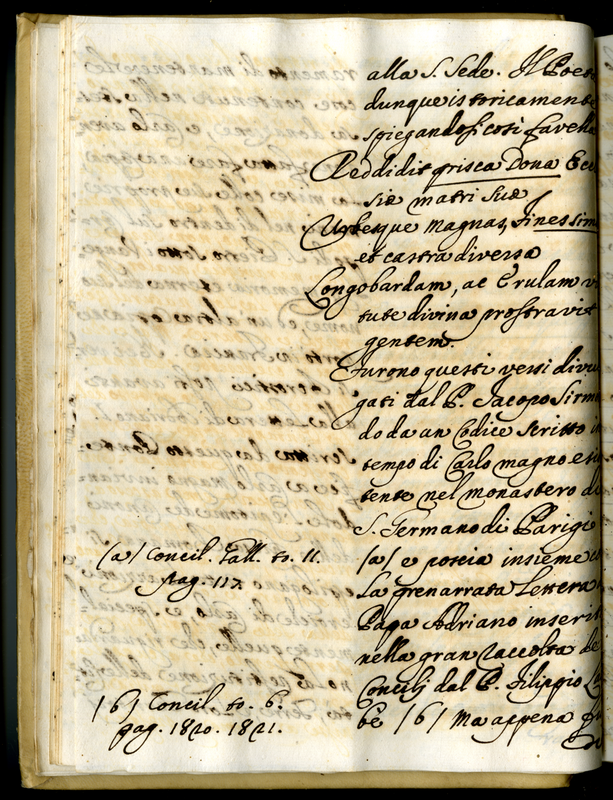 alla S. Sede. Il Poet
dunque istoricament
spiegandosi così favell
Reddidit prisca Dona Ecc
siæ matri suæ
Urbesque magnas, fines sim
et castra diversa
Longobardam, ac Erulam vi
tute divina prostravit
gentem.
Furono questi versi divu
gati dal P. Jacopo Sirm
do da un Codice scritto i
tempo di Carlo magno esis
tente nel monastero di
S. Germano di Parigi
(a) e poscia insieme c
La prenarrata Lettera
Papa Adriano inserit
nella gran raccolta de
Concilj dal P. Filippo La
bè (b) Ma appena
(a) Concil. Gall. to. 11.
pag. 117
(b) Concil. to. 6.
pag. 1820. 1821.